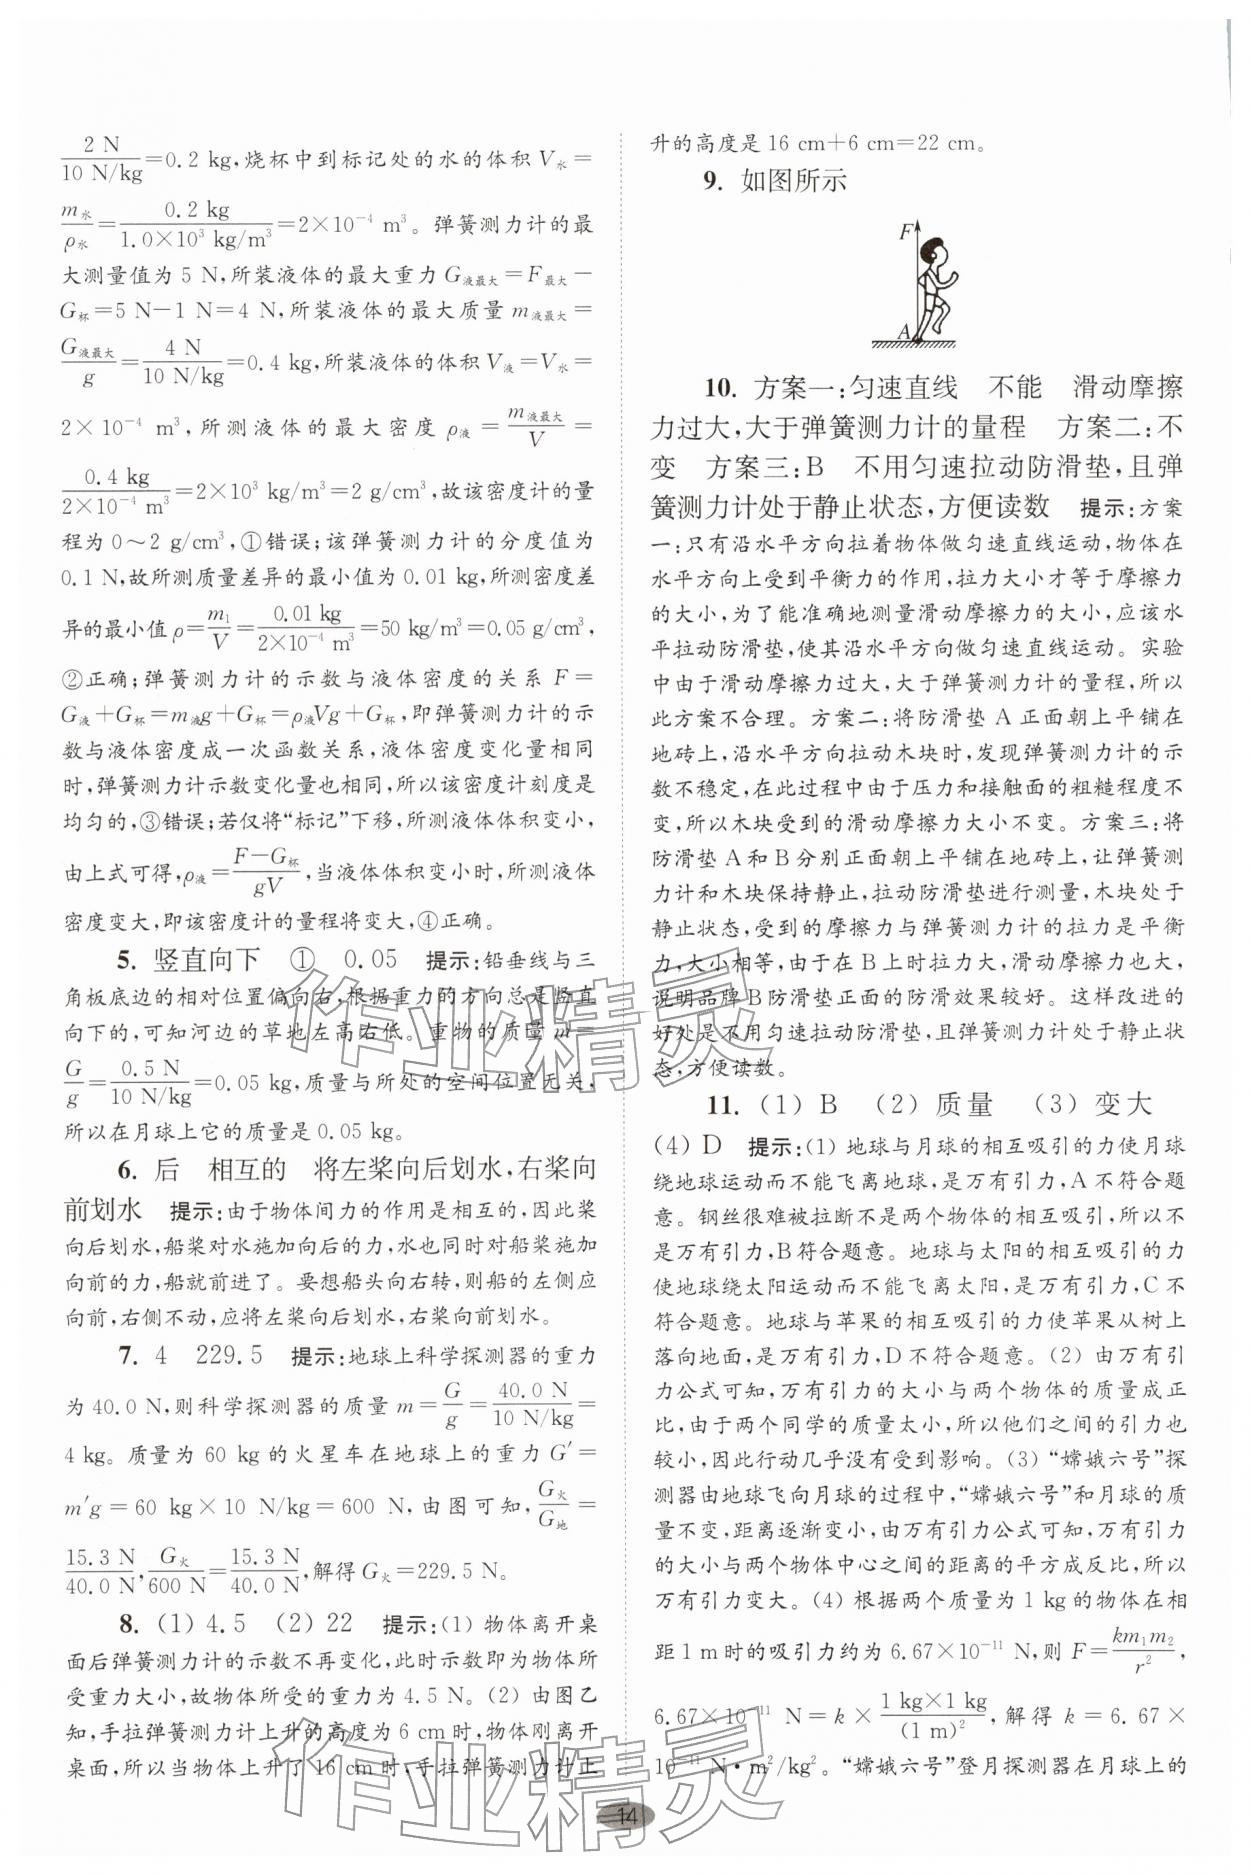 2 N/10 N/kg=0.2 kg,烧杯中到标记处的水的体积 V水=
m水/ρ水=0.2 kg/1.0×10³ kg/m³=2×10⁻⁴ m³。弹簧测力计的最
大测量值为 5 N,所装液体的最大重力 G液最大=F最大-
G杯=5 N-1 N=4 N,所装液体的最大质量 m液最大=
G液最大/g=4 N/10 N/kg=0.4 kg,所装液体的体积 V液=V水=
2×10⁻⁴ m³,所测液体的最大密度 ρ液=m液最大/V=
0.4 kg/2×10⁻⁴ m³=2×10³ kg/m³=2 g/cm³,故该密度计的量
程为 0～2 g/cm³,①错误;该弹簧测力计的分度值为
0.1 N,故所测质量差异的最小值为 0.01 kg,所测密度差
异的最小值 ρ=m₁/V=0.01 kg/2×10⁻⁴ m³=50 kg/m³=0.05 g/cm³,
②正确;弹簧测力计的示数与液体密度的关系 F=
G液+G杯=m液g+G杯=ρ液Vg+G杯,即弹簧测力计的示
数与液体密度成一次函数关系,液体密度变化量相同
时,弹簧测力计示数变化量也相同,所以该密度计刻度是
均匀的,③错误;若仅将“标记”下移,所测液体体积变小,
由上式可得,ρ液=F-G杯/gV,当液体体积变小时,所测液体
密度变大,即该密度计的量程将变大,④正确。
5. 竖直向下 ① 0.05 提示:铅垂线与三
角板底边的相对位置偏向右,根据重力的方向总是竖直
向下的,可知河边的草地左高右低。重物的质量 m=
G/g=0.5 N/10 N/kg=0.05 kg,质量与所处的空间位置无关,
所以在月球上它的质量是 0.05 kg。
6. 后 相互的 将左桨向后划水,右桨向
前划水 提示:由于物体间力的作用是相互的,因此桨
向后划水,船桨对水施加向后的力,水也同时对船桨施加
向前的力,船就前进了。要想船头向右转,则船的左侧应
向前,右侧不动,应将左桨向后划水,右桨向前划水。
7. 4 229.5 提示:地球上科学探测器的重力
为 40.0 N,则科学探测器的质量 m=G/g=40.0 N/10 N/kg=
4 kg。质量为 60 kg 的火星车在地球上的重力 G′=
m′g=60 kg×10 N/kg=600 N,由图可知,G火/G地=
15.3 N/40.0 N,G火/600 N=15.3 N/40.0 N,解得 G火=229.5 N。
8. (1) 4.5 (2) 22 提示:(1) 物体离开桌
面后弹簧测力计的示数不再变化,此时示数即为物体所
受重力大小,故物体所受的重力为 4.5 N。(2) 由图乙
知,手拉弹簧测力计上升的高度为 6 cm 时,物体刚离开
桌面,所以当物体上升了 16 cm 时,手拉弹簧测力计上
升的高度是 16 cm+6 cm=22 cm。
9. 如图所示
F
A
10. 方案一:匀速直线 不能 滑动摩擦
力过大,大于弹簧测力计的量程 方案二:不
变 方案三:B 不用匀速拉动防滑垫,且弹
簧测力计处于静止状态,方便读数 提示:方案
一:只有沿水平方向拉着物体做匀速直线运动,物体在
水平方向上受到平衡力的作用,拉力大小才等于摩擦力
的大小,为了能准确地测量滑动摩擦力的大小,应该水
平拉动防滑垫,使其沿水平方向做匀速直线运动。实验
中由于滑动摩擦力过大,大于弹簧测力计的量程,所以
此方案不合理。方案二:将防滑垫 A 正面朝上平铺在
地砖上,沿水平方向拉动木块时,发现弹簧测力计的示
数不稳定,在此过程中由于压力和接触面的粗糙程度不
变,所以木块受到的滑动摩擦力大小不变。方案三:将
防滑垫 A 和 B 分别正面朝上平铺在地砖上,让弹簧测
力计和木块保持静止,拉动防滑垫进行测量,木块处于
静止状态,受到的摩擦力与弹簧测力计的拉力是平衡
力,大小相等,由于在 B 上时拉力大,滑动摩擦力也大,
说明品牌 B 防滑垫正面的防滑效果较好。这样改进的
好处是不用匀速拉动防滑垫,且弹簧测力计处于静止状
态,方便读数。
11. (1) B (2) 质量 (3) 变大
(4) D 提示:(1) 地球与月球的相互吸引的力使月球
绕地球运动而不能飞离地球,是万有引力,A 不符合题
意。钢丝很难被拉断不是两个物体的相互吸引,所以不
是万有引力,B 符合题意。地球与太阳的相互吸引的力
使地球绕太阳运动而不能飞离太阳,是万有引力,C 不
符合题意。地球与苹果的相互吸引的力使苹果从树上
落向地面,是万有引力,D 不符合题意。(2) 由万有引
力公式可知,万有引力的大小与两个物体的质量成正
比,由于两个同学的质量太小,所以他们之间的引力也
较小,因此行动几乎没有受到影响。(3) “嫦娥六号”探
测器由地球飞向月球的过程中,“嫦娥六号”和月球的质
量不变,距离逐渐变小,由万有引力公式可知,万有引力
的大小与两个物体中心之间的距离的平方成反比,所以
万有引力变大。(4) 根据两个质量为 1 kg 的物体在相
距 1 m 时的吸引力约为 6.67×10⁻¹¹ N,则 F=km₁m₂/r²,
6.67×10⁻¹¹ N=k×1 kg×1 kg/(1 m)²,解得 k=6.67×
10⁻¹¹ N·m²/kg²。“嫦娥六号”登月探测器在月球上的
14
作业精灵
作业精灵